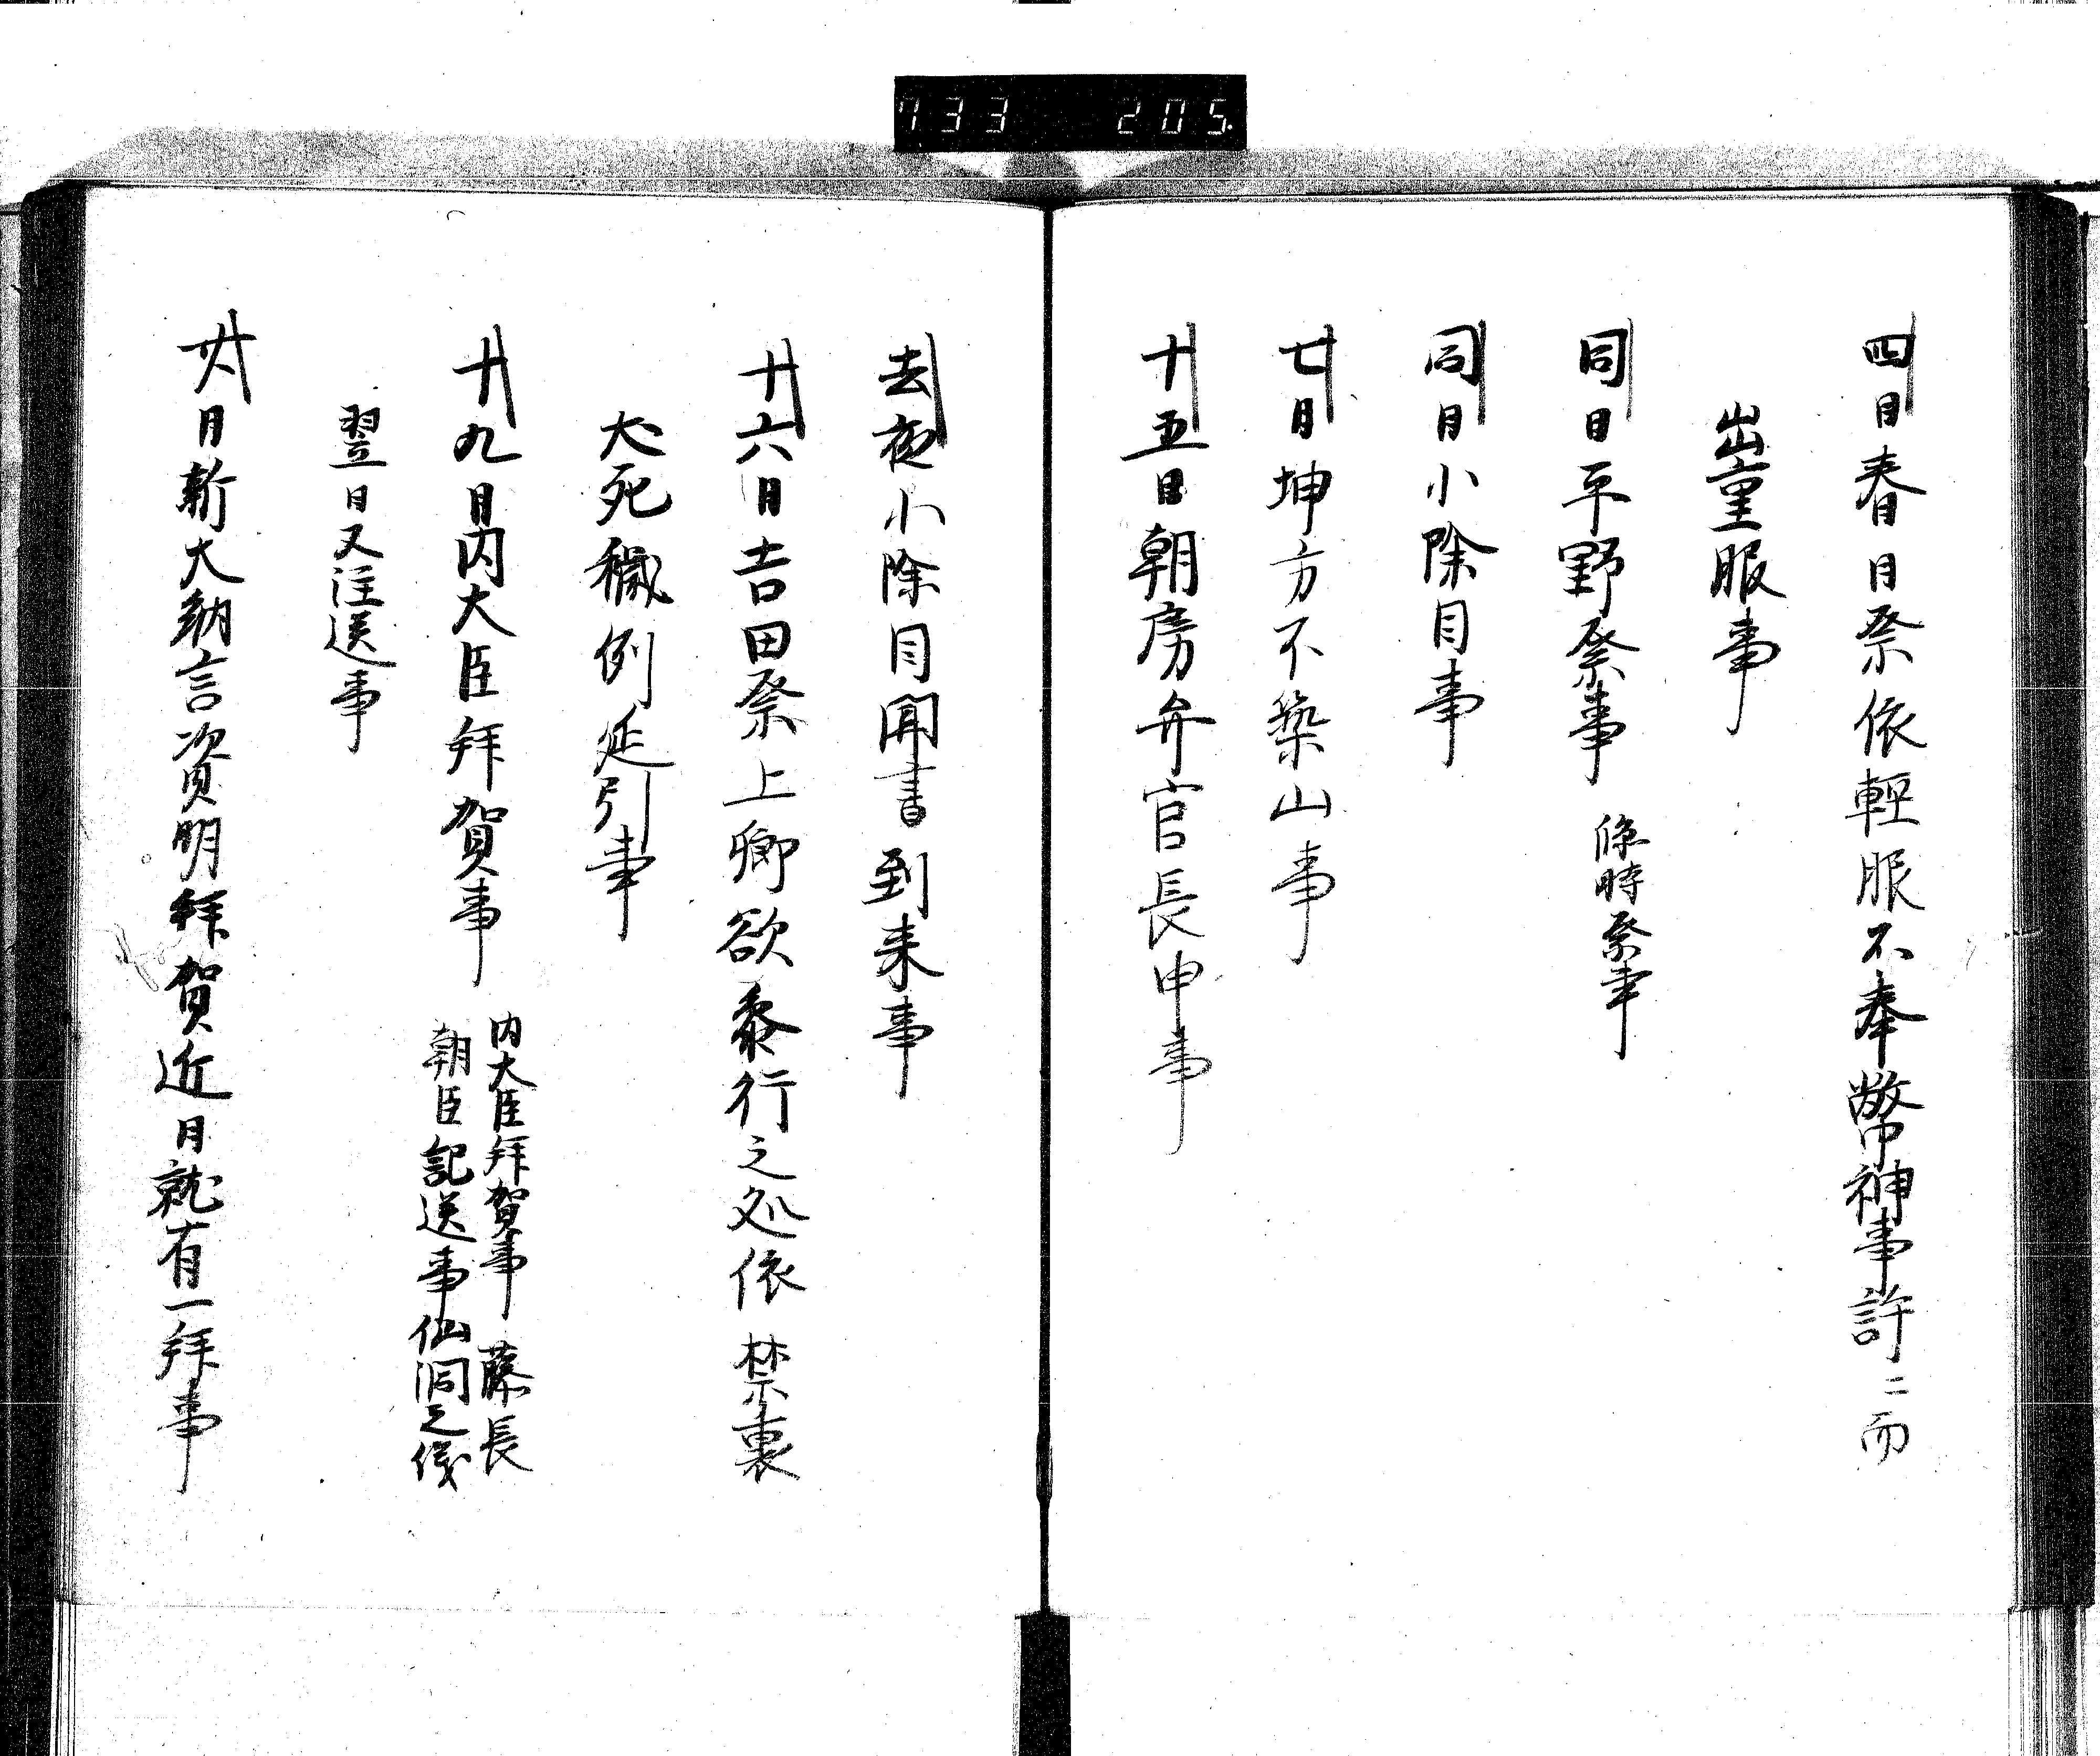 733 205
四日春日祭依軽服不奉幣神事許ニ而
出重服事
同日平野祭事 臨時祭事
同日小除目事
七日坤方不築山事
十五日朝房弁官長申事
去夜小除目聞書到来事
十六日吉田祭上卿欲参行之処依禁裏
犬死穢例延引事
十九日内大臣拝賀事 内大臣拝賀事藤長
朝臣記送事仙洞之儀
翌日又注送事
廿八日新大納言資明拝賀近日就有一拝事